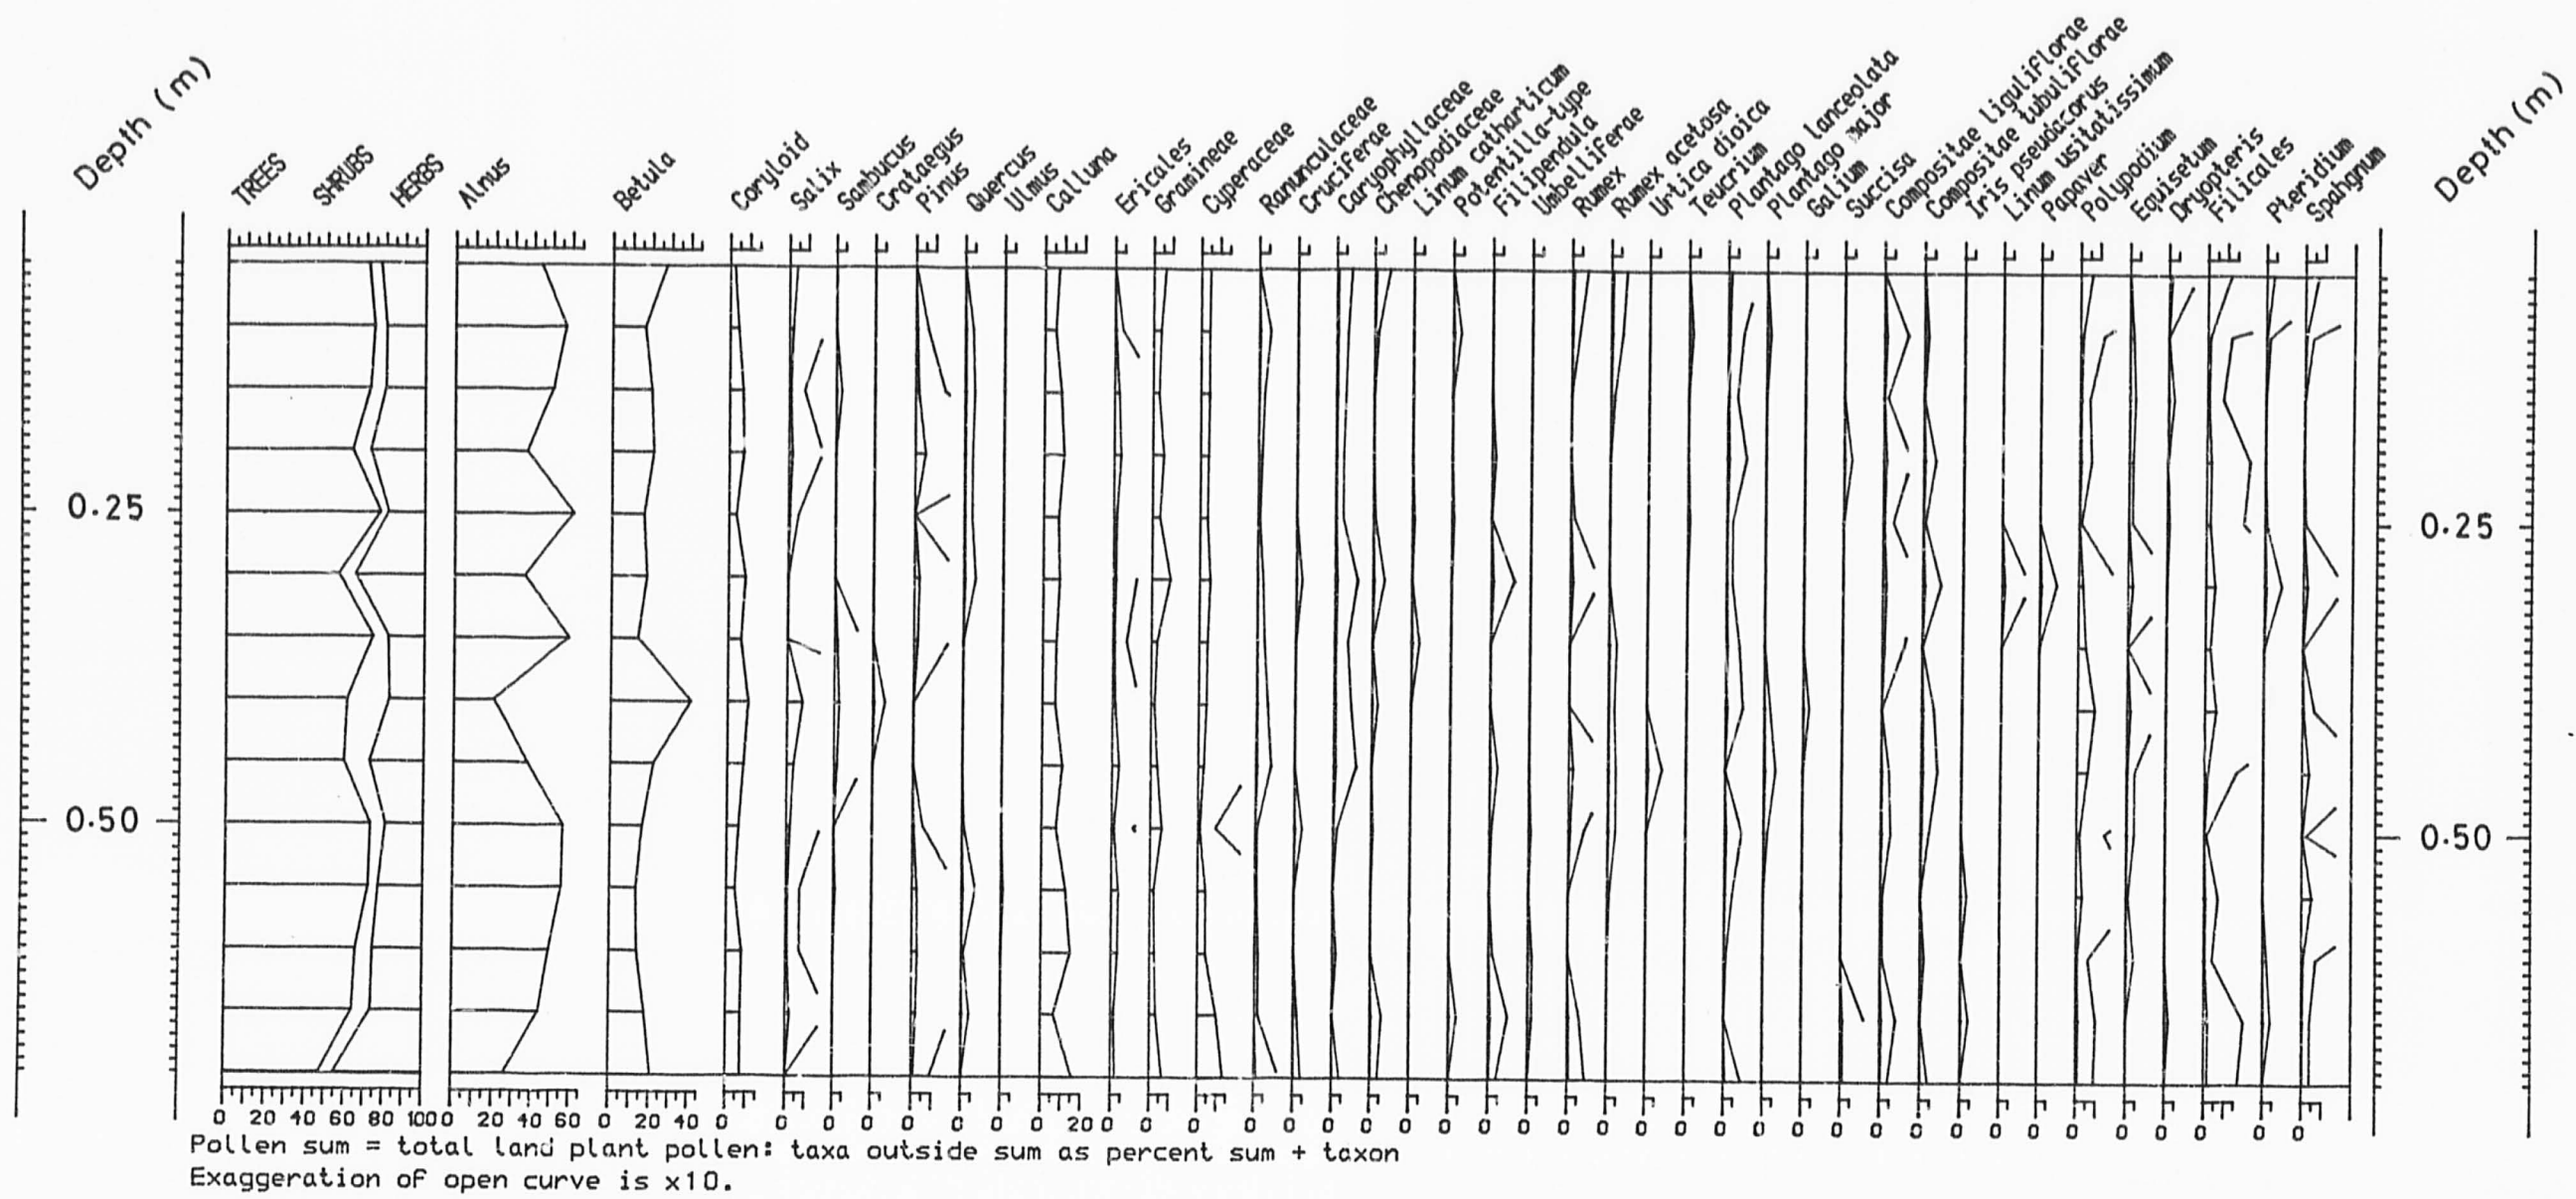 Depth (m)
TREES
SHRUBS
HERBS
Alnus
Betula
Coryloid
Salix
Sambucus
Crataegus
Pinus
Quercus
Ulmus
Calluna
Ericales
Gramineae
Cyperaceae
Ranunculaceae
Cruciferae
Caryophyllaceae
Chenopodiaceae
Linum catharticum
Potentilla-type
Filipendula
Umbelliferae
Rumex
Rumex acetosa
Urtica dioica
Teucrium
Plantago lanceolata
Plantago major
Galium
Succisa
Compositae liguliflorae
Compositae tubuliflorae
Iris pseudacorus
Linum usitatissimum
Papaver
Polypodium
Equisetum
Dryopteris
Filicales
Pteridium
Spahgnum
Depth (m)
0.25 0.25
0.50 0.50
0 20 40 60 80 100 0 20 40 60 0 20 40 0 0 0 0 0 0 0 0 20 0 0 0 0 0 0 0 0 0 0 0 0 0 0 0 0 0 0 0 0 0 0 0 0 0 0 0 0 0 0
Pollen sum = total land plant pollen: taxa outside sum as percent sum + taxon
Exaggeration of open curve is x10.